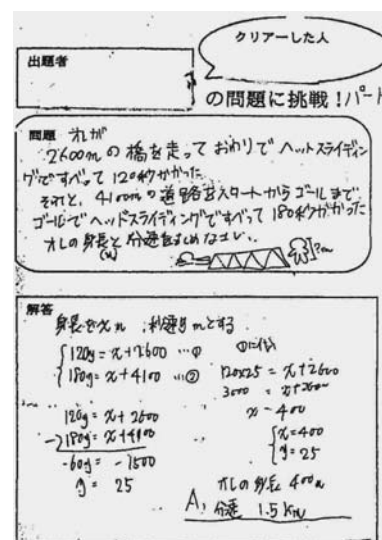 クリアーした人
出題者
の問題に挑戦!パート
問題 オレが
2600mの橋を走っておわりでヘットスライディン
グですべって120秒かかった
それと、4100mの道路をスタートからゴールまで
ゴールでヘッドスライディングですべって180秒かかった
オレの身長と分速をもとめなさい。
(x)
解答
身長をxm 秒速ymとする
120y=x+2600…①
180y=x+4100…②
120y=x+2600
-)180y=x+4100
-60y=-1500
y=25
①に代
120×25=x+2600
3000=x+2600
x=400
x=400
y=25
オレの身長 400m
A, 分速 1.5km